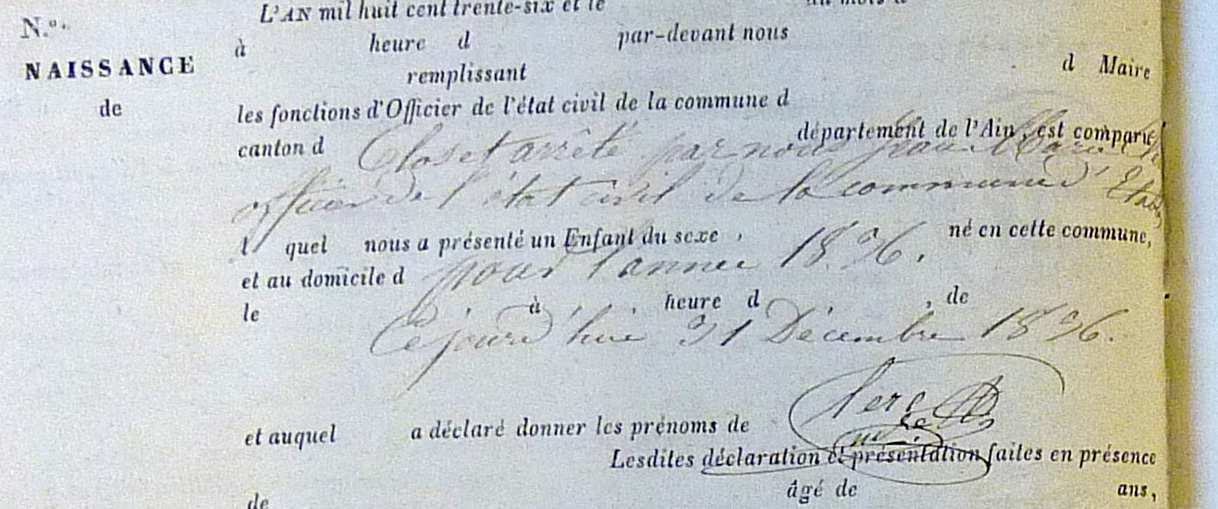 L'AN mil huit cent trente-six et le
N.º
à heure d par-devant nous
NAISSANCE
remplissant d Maire
de
les fonctions d'Officier de l'état civil de la commune d
canton d département de l'Ain, est comparu
Clos et arrêté par nous Jean Marie
officier de l'état civil de la commune d'
l quel nous a présenté un Enfant du sexe , né en cette commune,
pour l'année 1836.
et au domicile d
le à heure d , de
Cejourd'hui 31 Décembre 1836.
et auquel a déclaré donner les prénoms de
Lesdites déclaration et présentation faites en présence
de âgé de ans,